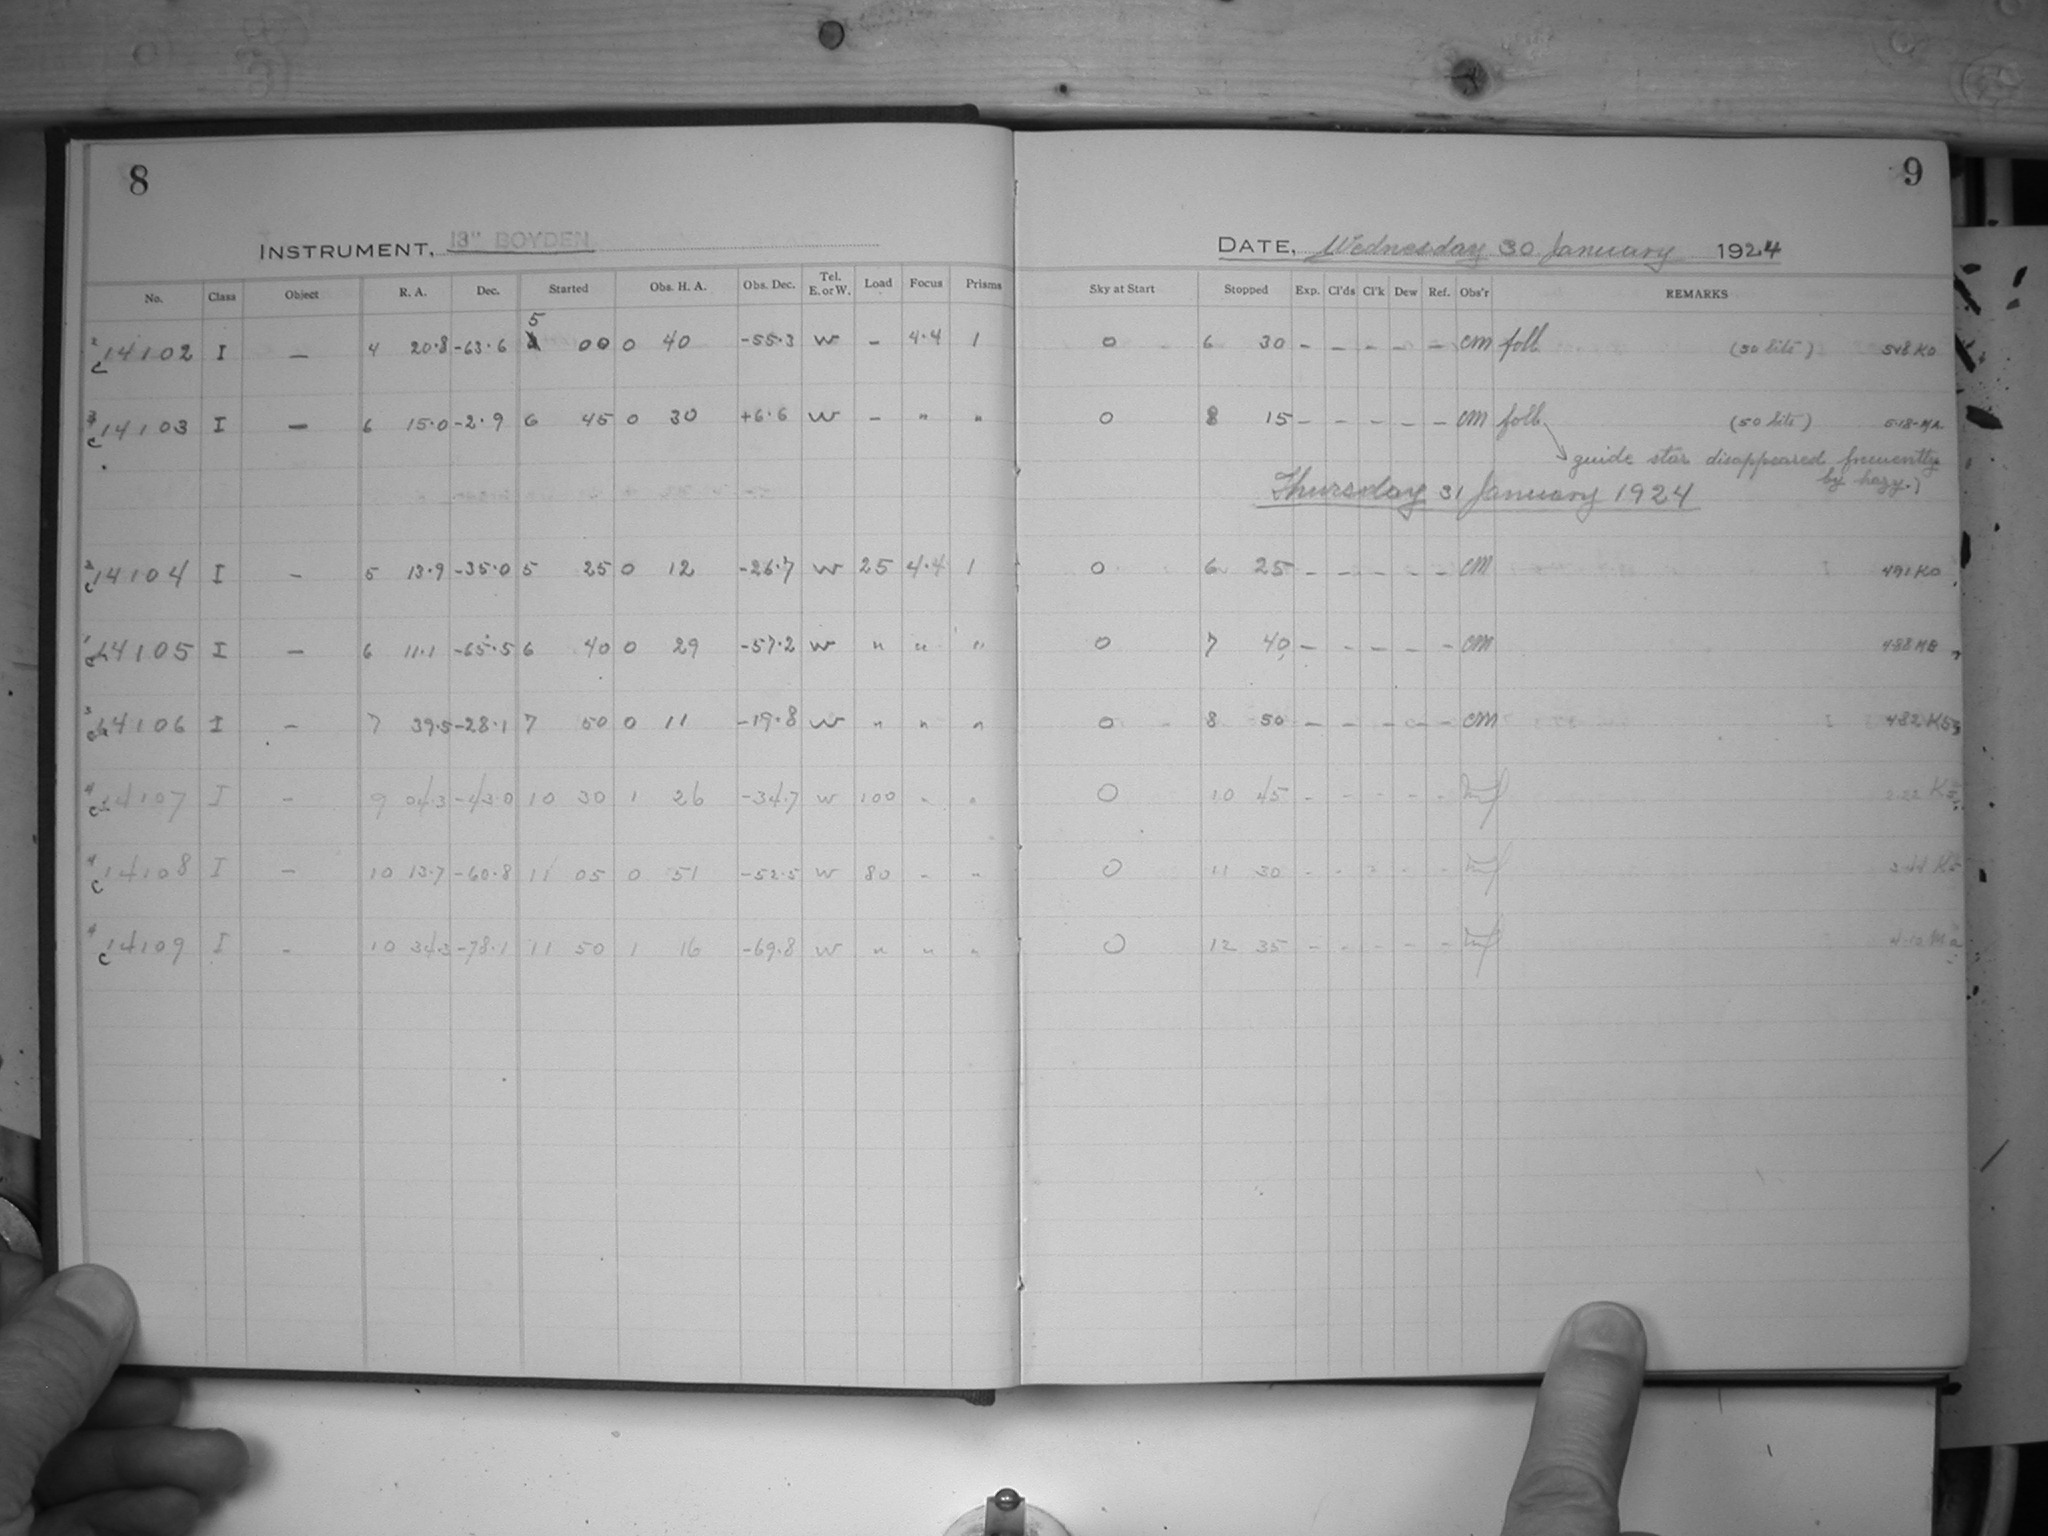 8
9
INSTRUMENT, 13" BOYDEN
DATE, Wednesday 30 January 1924
No. Class Object R. A. Dec. Started Obs. H. A. Obs. Dec. Tel. E. or W. Load Focus Prisms Sky at Start Stopped Exp. Cl'ds Cl'k Dew Ref. Obs'r REMARKS
5
2 c 14102 I — 4 20.8 -63.6 00 0 40 -55.3 W - 4.4 1 0 6 30 - - - - - CM foll (50 lits) 5.48 K0
3 c 14103 I — 6 15.0 -2.9 6 45 0 30 +6.6 W - " " 0 8 15 - - - - - CM foll (50 lits) 5.18-MA
guide star disappeared frecuently
by hazy.)
Thursday 31 January 1924
2 c 14104 I - 5 13.9 -35.0 5 25 0 12 -26.7 W 25 4.4 1 0 6 25 - - - - - CM 4.91 K0
1 c 14105 I - 6 11.1 -65.5 6 40 0 29 -57.2 W " " " 0 7 40 - - - - - CM 4.88 MB
3 c 14106 I - 7 39.5 -28.1 7 50 0 11 -19.8 W " " " 0 8 50 - - - - - CM 4.82 K5
4 c 14107 I - 9 04.3 -43.0 10 30 1 26 -34.7 W 100 " " 0 10 45 - - - - - 2.22 K5
4 c 14108 I - 10 13.7 -60.8 11 05 0 51 -52.5 W 80 " " 0 11 30 - - - - - 3.44 K5
4 c 14109 I - 10 34.3 -78.1 11 50 1 16 -69.8 W " " " 0 12 35 - - - - - Ma